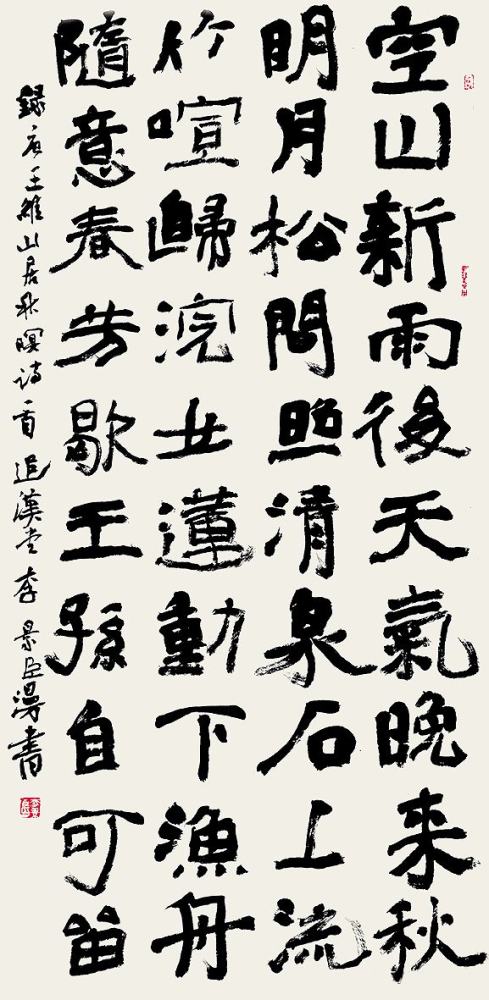 空山新雨後天氣晚来秋
明月松間照清泉石上流
竹喧歸浣女蓮動下漁舟
隨意春芳歇王孫自可留
録唐王維山居秋暝诗一首追漢堂李景臣漫書